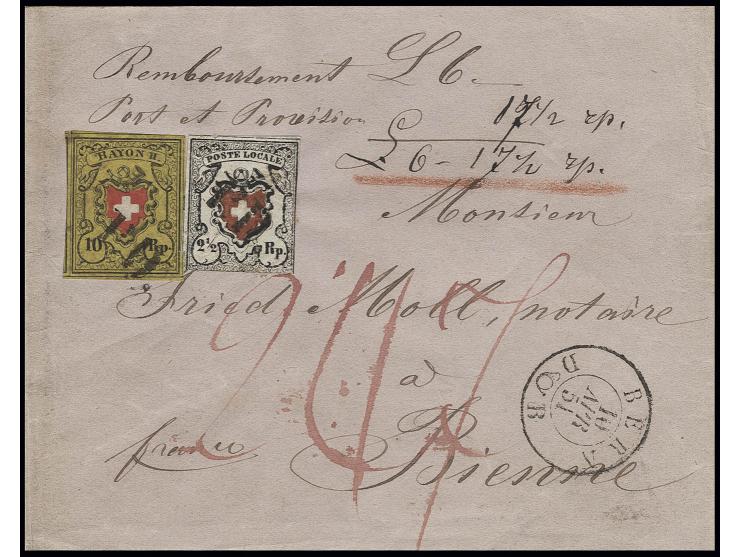 Remboursement L 6.
Port et Provision 17 1/2 rp.
L 6 - 17 1/2 rp.
RAYON II.
10 Rp.
POSTE LOCALE
2 1/2 Rp.
Monsieur
Fried. Moll, notaire
à
Bienne
franco
BERN
10
APR
51